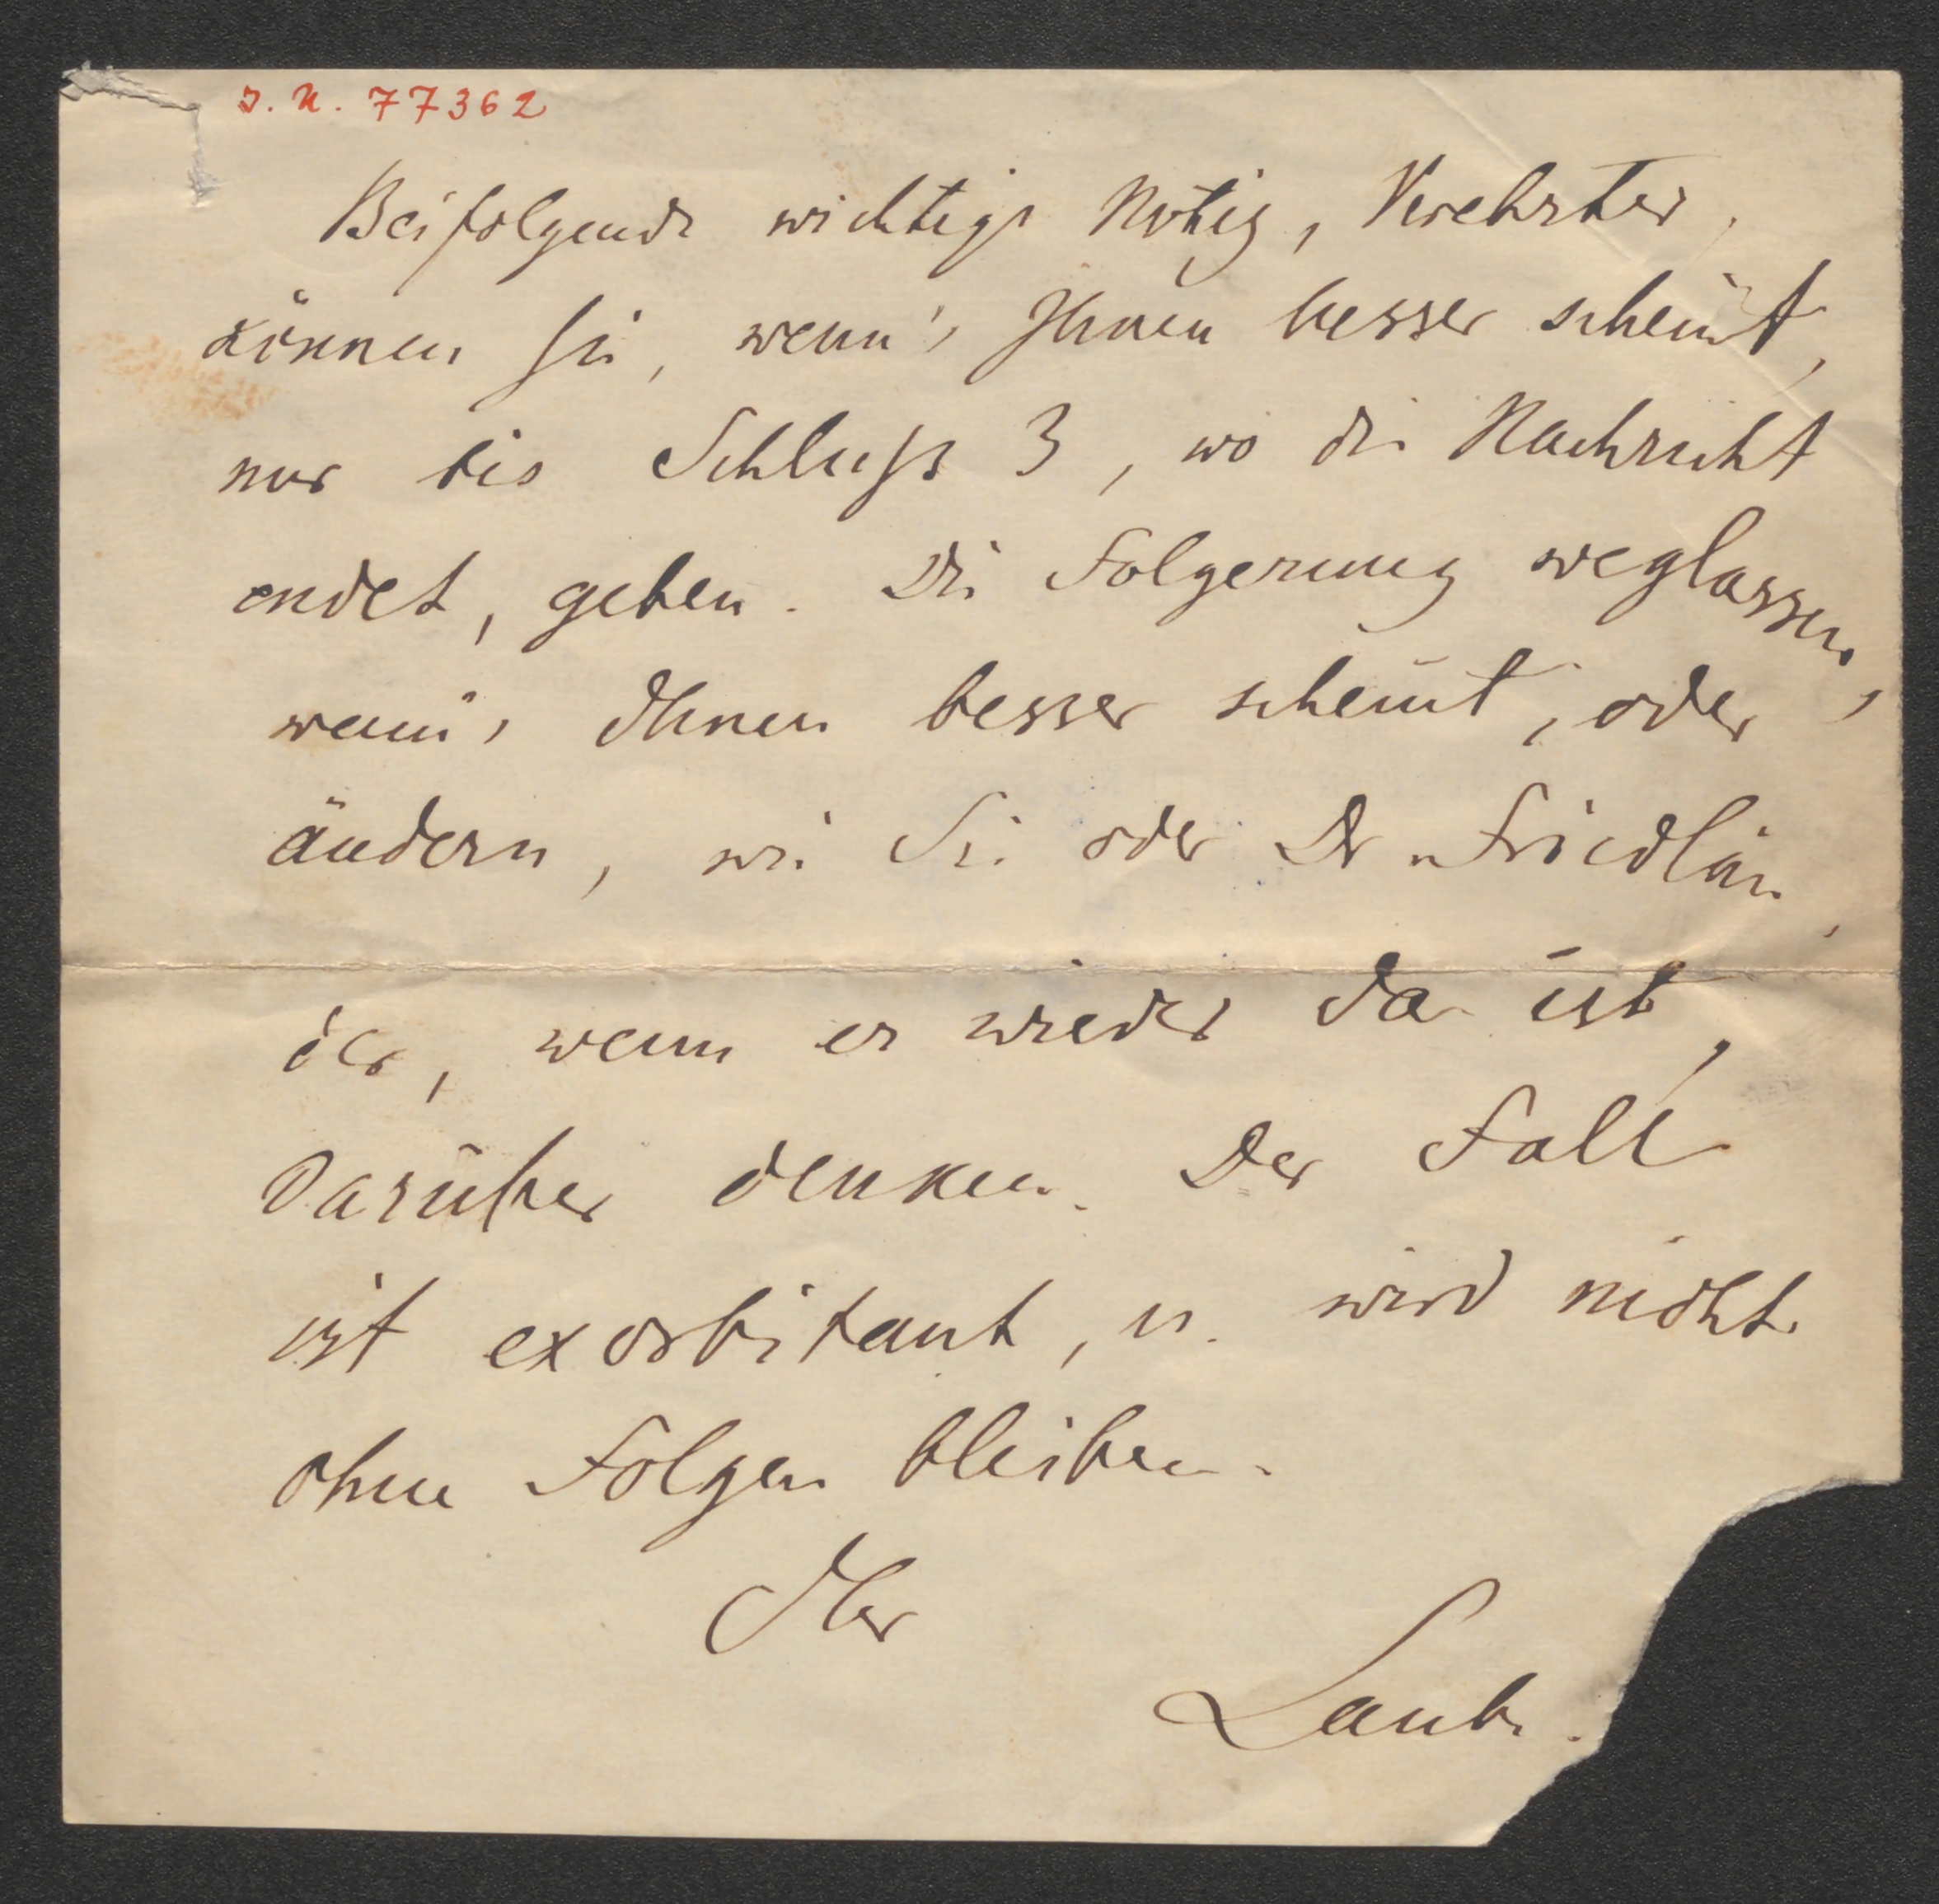 J. N. 77362
Beifolgende wichtige Notiz, Verehrter,
können Sie, wenn's Ihnen besser scheint,
nur bis Schluß 3, wo die Nachricht
endet, geben. Die Folgerung weglassen,
wenn's Ihnen besser scheint, oder
ändern, wie Sie oder Dr Friedlän
der, wenn er wieder da ist,
darüber denken. Der Fall
ist exorbitant, u. wird nicht
ohne Folgen bleiben.
Ihr
Laube.